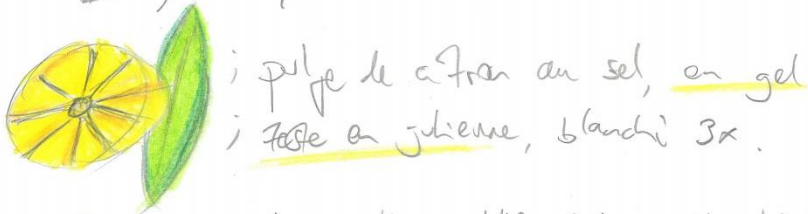 ; pulpe de citron au sel, en gel
; zeste en julienne, blanchi 3x.